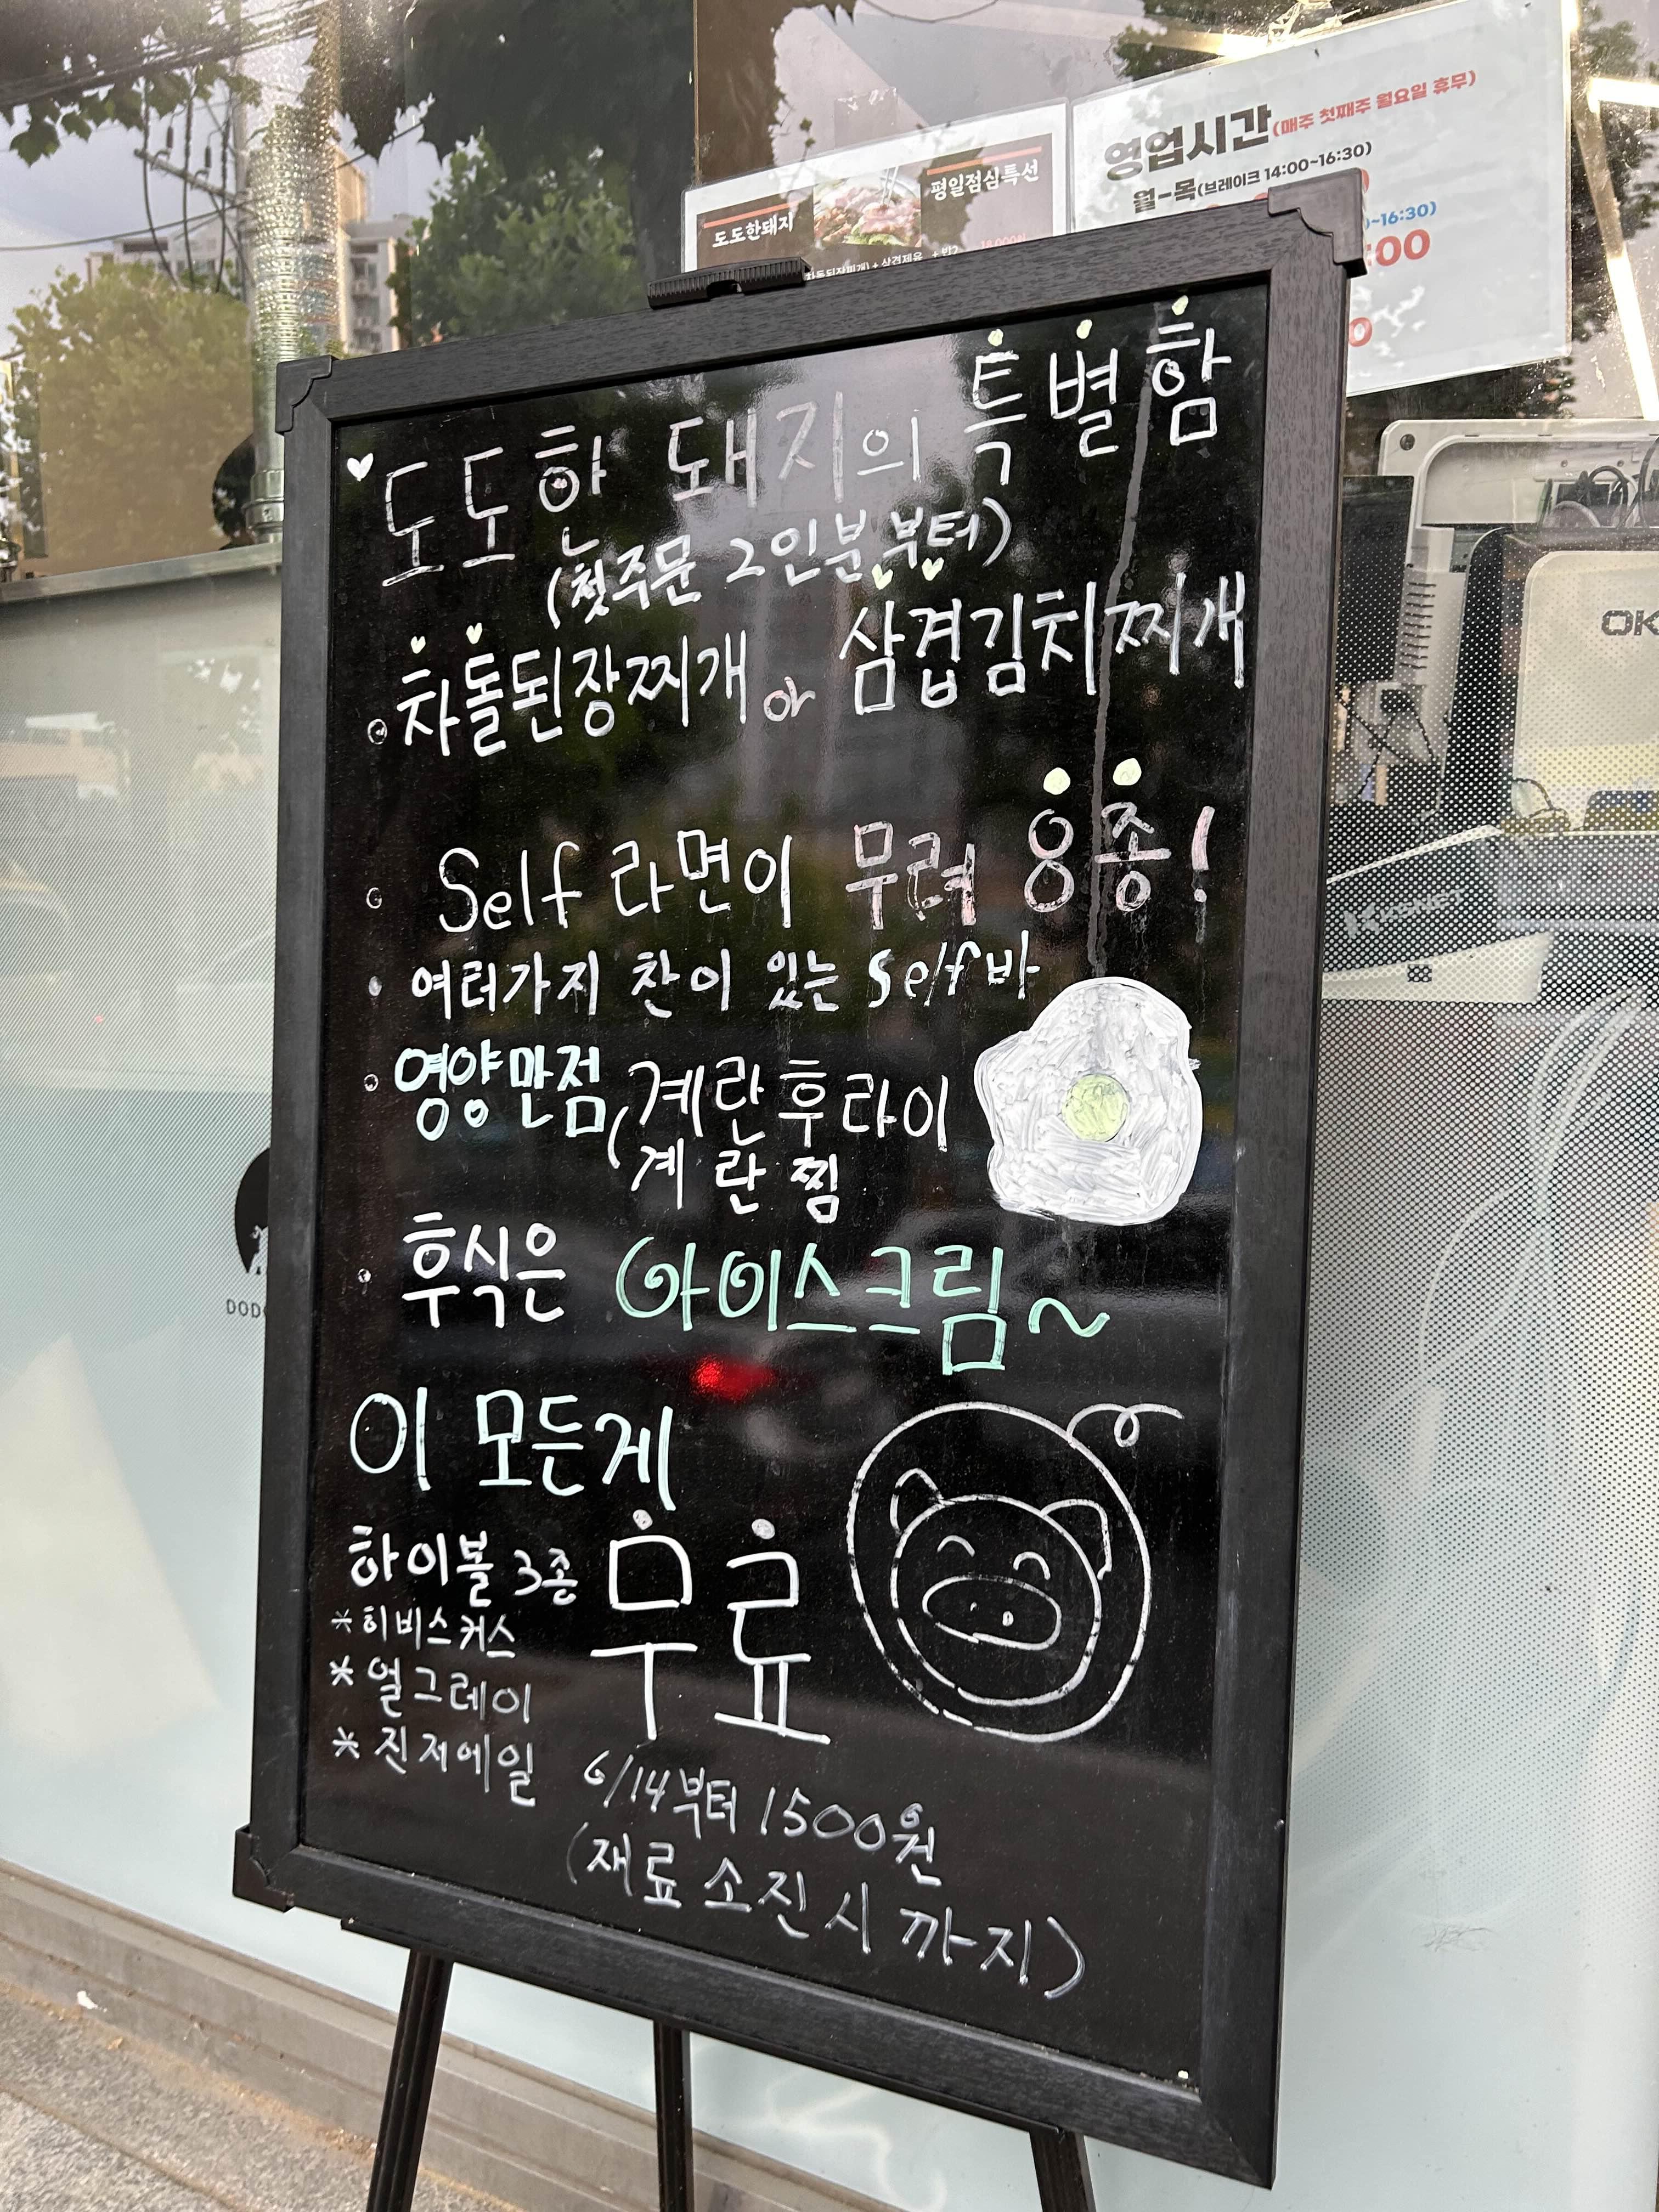 영업시간(매주 첫째주 월요일 휴무)
월-목(브레이크 14:00~16:30)
~16:30)
:00
평일점심특선
도도한돼지
도도한 돼지의 특별함
(첫주문 2인분부터)
차돌된장찌개 or 삼겹김치찌개
Self 라면이 무려 8종!
여터가지 찬이 있는 Self바
영양만점 (계란후라이
계란찜
후식은 아이스크림~
이 모든게
무료
하이볼 3종
*히비스커스
*얼그레이
*진저에일
6/14부터 1500원
(재료 소진시 까지)
OK
DOD